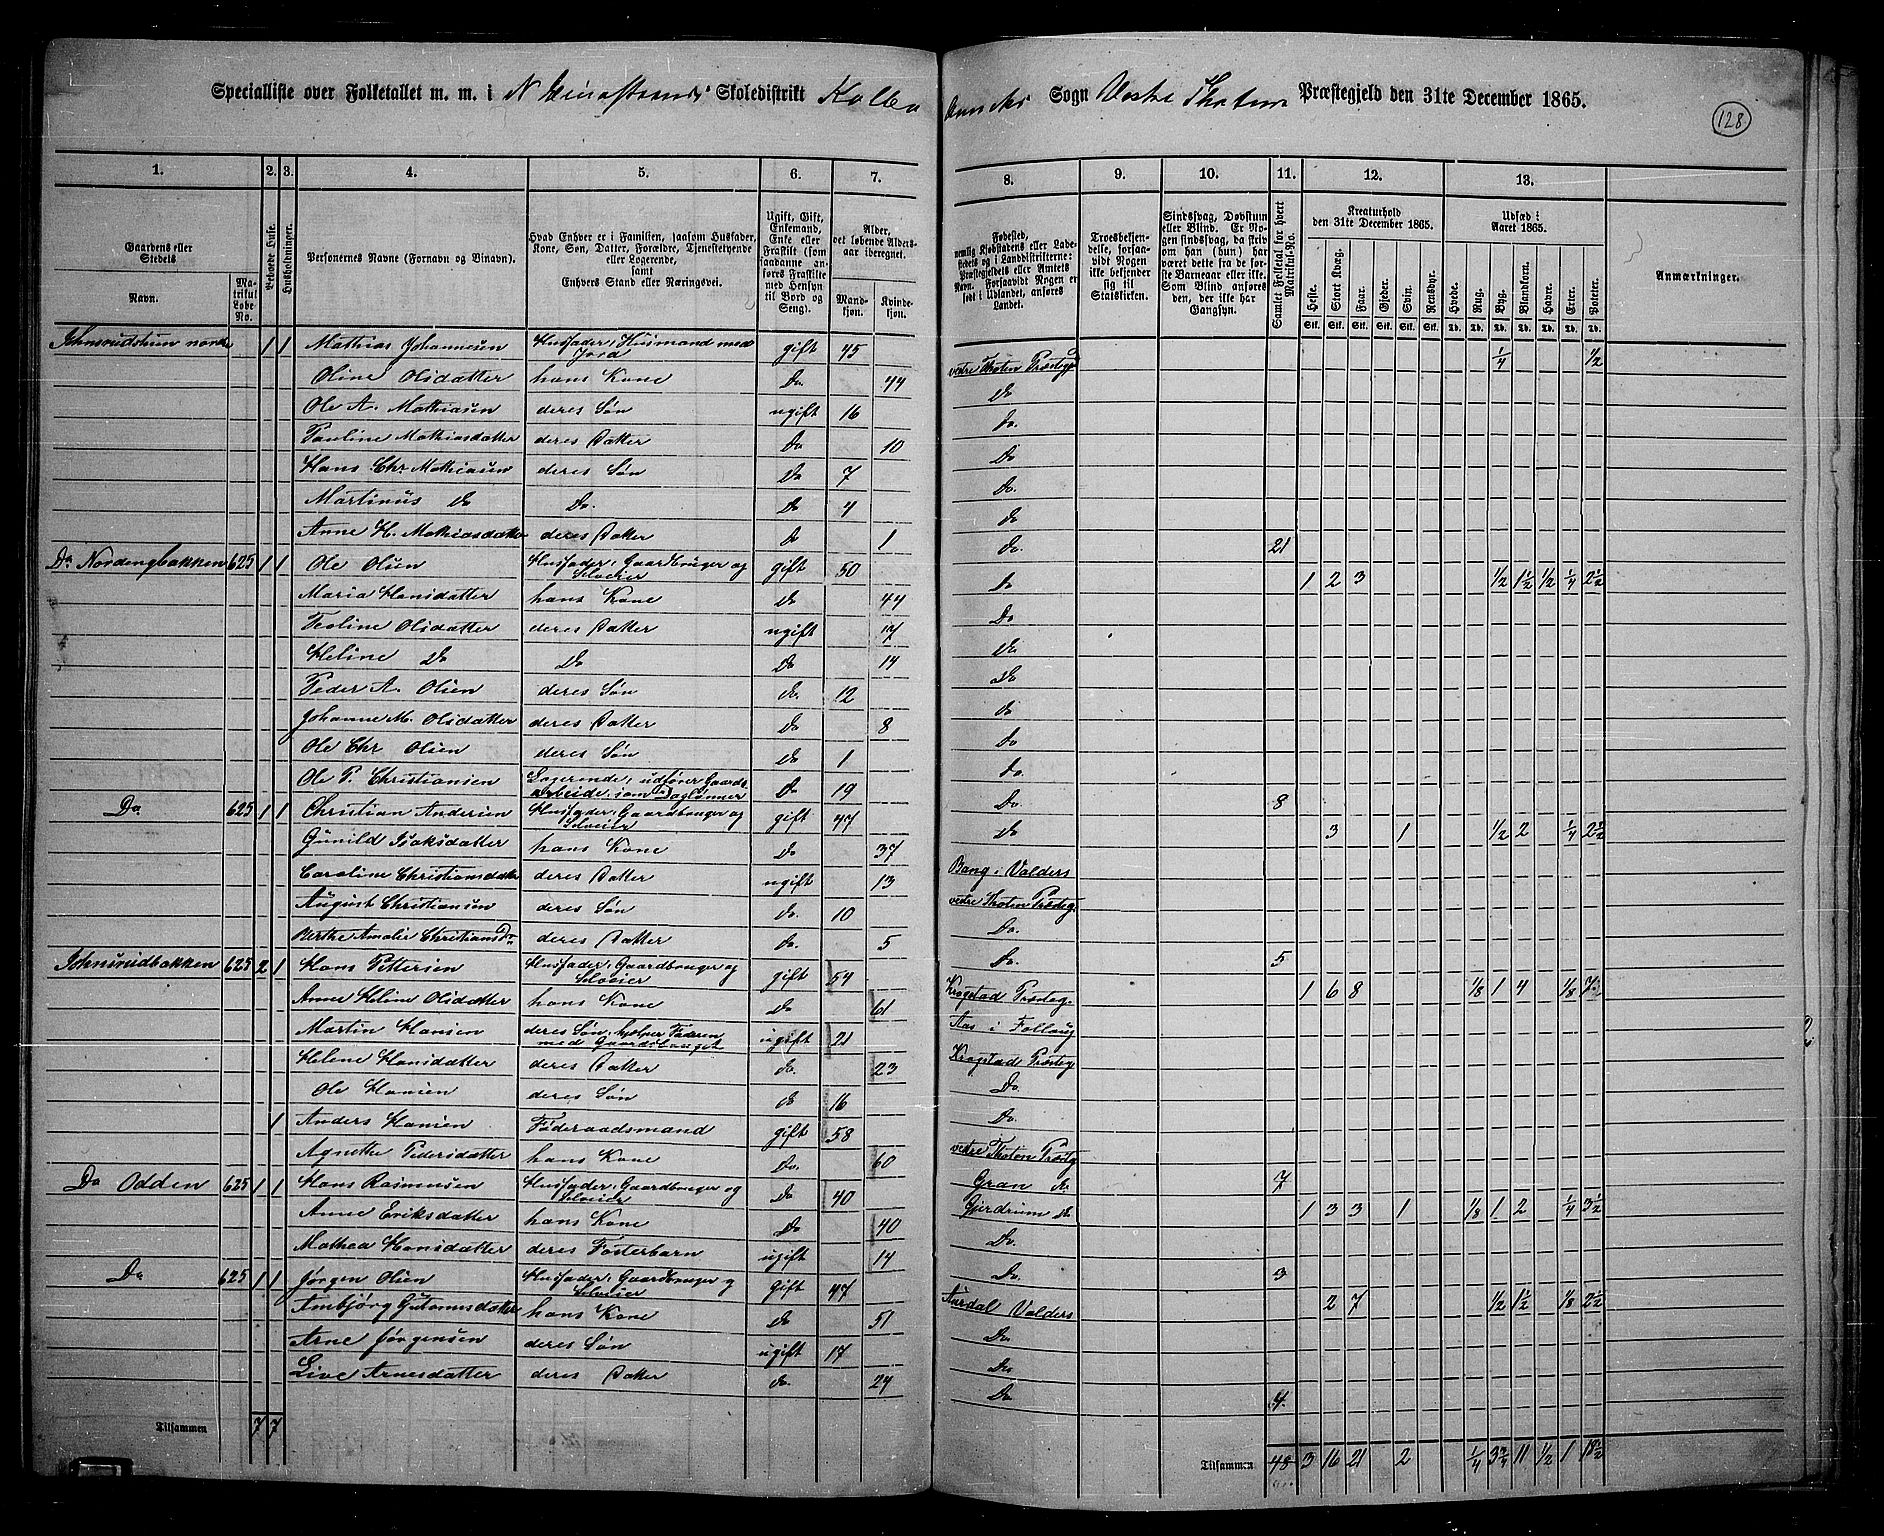 Specialliste over Folketallet m. m. i N Skoledistrikt Kolbu Annex Sogn Vestre Thoten Præstegjeld den 31te December 1865.
128
1. 2. 3. 4. 5. 6. 7. 8. 9. 10. 11. 12. 13.
Gaardens eller Stedets
Navn.
Matrikul Løbe-No.
Beboede Huse.
Husholdninger.
Personernes Navne (Fornavn og Binavn).
Hvad Enhver er i Familien, saasom Husfader, Kone, Søn, Datter, Forældre, Tjenestetyende eller Logerende, samt Enhvers Stand eller Næringsvei.
Ugift, Gift, Enkemand, Enke eller Fraskilt (som saadanne anføres Fraskilte med Hensyn til Bord og Seng).
Alder, det løbende Aldersaar iberegnet.
Mandkjøn. Kvindekjøn.
Fødested, nemlig Kjøbstadens eller Ladestedets og i Landdistrikterne: Præstegjeldets eller Amtets Navn. Forsaavidt Nogen er født i Udlandet, anføres Landet.
Troesbekjendelse, forsaavidt Nogen ikke bekjender sig til Statskirken.
Sindssvag, Døvstum eller Blind. Er Nogen sindssvag, da skriv om han (hun) har været dette fra de første Barneaar eller ikke. Som Blind anføres den, der ikke har Gangsyn.
Samlet Folketal for hvert Matrikul-No.
Kreaturhold den 31te December 1865.
Heste. Stort Kvæg. Faar. Gjeder. Svin. Rensdyr.
Udsæd i Aaret 1865.
Hvede. Rug. Byg. Blandkorn. Havre. Erter. Poteter.
Stk. Stk. Stk. Stk. Stk. Stk. Td. Td. Td. Td. Td. Td. Td.
Anmærkninger.
1 1 Mathias Johannesen Husfader, Husmand med Jord gift 45 vestre Thoten Præsteg 1/4 1/2
Oline Olsdatter hans Kone Do. 44 Do
Ole A. Mathiasen deres Søn ugift 16 Do.
Pauline Mathiasdatter deres Datter Do 10 Do
Hans Chr Mathiasen deres Søn Do 7 Do.
Martinus Do Do. Do 4 Do
Anne H. Mathiasdatter deres Datter Do 1 Do. 21
Do Nordengbakken 625 1 1 Ole Olsen Husfader, Gaardbruger og Selveier gift 50 Do 1 2 3 1/2 1 1/2 1/2 1/4 2 1/2
Maria Hansdatter hans Kone Do 44 Do.
Teoline Olsdatter deres Datter ugift 17 Do
Heline Do Do Do 14 Do
Peder A. Olsen deres Søn do. 12 do
Johanne M. Olsdatter deres Datter Do 8 Do
Ole Chr Olsen deres Søn Do 1 Do.
Ole P. Christiansen Logerende, udfører Gaardsarbeide som Daglønner Do 19 Do. 8
Do. 625 1 1 Christian Andersen Husfader, Gaardbruger og Selveier gift 47 Do 3 1 1/2 2 1/4 2 1/2
Gunild Isaksdatter hans Kone Do 37 Bang i Valders
Caroline Christiansdatter deres Datter ugift 13 vestre Thoten Præsteg.
August Christiansen deres Søn do. 10 Do.
Berthe Amalie Christians Dr. deres Datter do. 5 Do. 5
Johnsrudbakken 625 2 1 Hans Pettersen Husfader, Gaardbruger og Selveier gift 54 Kragstad Præsteg. 1 6 8 1/8 1 4 1/8 7
Anne Heline Olsdatter hans Kone Do 61 Aas i Follaug
Martin Hansen deres Søn, hjelper Faderen med Gaardsbruget ugift 21 Kragstad Præsteg
Helene Hansdatter deres Datter do. 23 Do.
Ole Hansen deres Søn do 16 Do.
1 Anders Hansen Føderaadsmand gift 58 vestre Thoten Præsteg
Agnethe Pedersdatter hans Kone Do. 60 Gran do. 7
Do Odden 625 1 1 Hans Rasmussen Husfader, Gaardbruger og Selveier Do 40 Gjerdrum do. 1 3 3 1 1/8 1 2 1/4 3 1/2
Anne Eriksdatter hans Kone Do 40 Do.
Mathea Hansdatter deres Fosterbarn ugift 14 Do. 3
Do 625 1 1 Jørgen Olsen Husfader, Gaardbruger og Selveier Gift 47 Aurdal Valders 2 7 1/2 1 1/2 1/8 2 1/2
hans Kone do 51 Do.
Arne Jørgensen deres Søn ugift 17 Do.
Live Arnesdatter deres Datter do. 24 Do 4
Tilsammen 7 7 Tilsammen 48 3 16 21 2 1/4 3 3/4 11 1/2 1 18 1/2